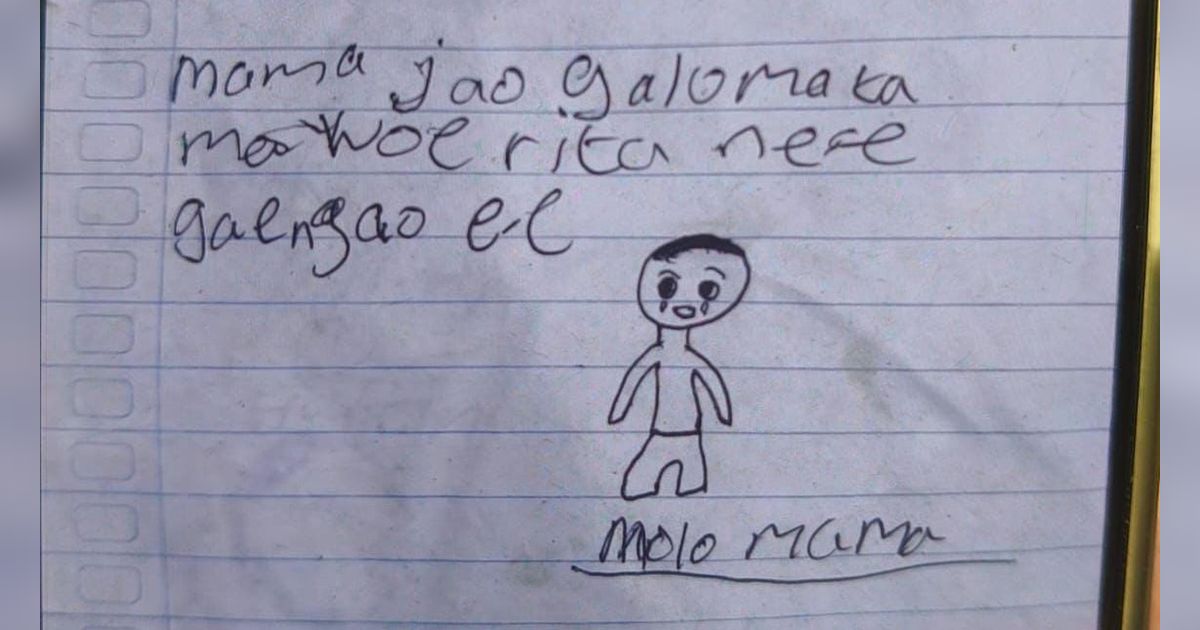 mama jao galo mata
mo woe rita nere
gaengao ee
molo mama